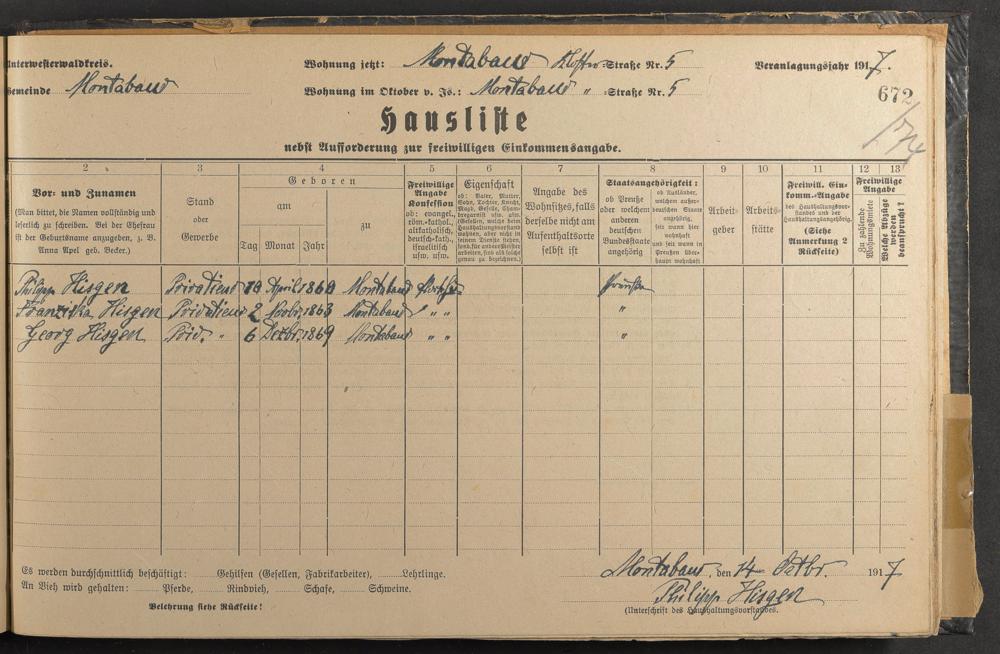 Unterwesterwaldkreis. Wohnung jetzt: Montabaur Kloster-Straße Nr. 5 Veranlagungsjahr 1917.
Gemeinde Montabaur Wohnung im Oktober v. Js.: Montabaur " -Straße Nr. 5
672
Hausliste
nebst Aufforderung zur freiwilligen Einkommensangabe.
2 3 4 5 6 7 8 9 10 11 12 13
Vor- und Zunamen
(Man bittet, die Namen vollständig und
leserlich zu schreiben. Bei der Ehefrau
ist der Geburtsname anzugeben, z. B.
Anna Apel geb. Becker.)
Stand
oder
Gewerbe
Geboren
am
Tag Monat Jahr
zu
Freiwillige
Angabe
Konfession
ob: evangel.,
röm.-kathol.,
altkatholisch,
deutsch-kath.,
israelitisch
usw. usw.
Eigenschaft
ob: Vater, Mutter,
Sohn, Tochter, Knecht,
Magd, Geselle, Cham-
bregarnist usw. usw.
(Gesellen, welche beim
Haushaltungsvorstand
wohnen, aber nicht in
seinem Dienste stehen,
sond. für andere Meister
arbeiten, sind als solche
genau zu bezeichnen.)
Angabe des
Wohnsitzes, falls
derselbe nicht am
Aufenthaltsorte
selbst ist
Staatsangehörigkeit:
ob Preuße
oder welchem
anderen
deutschen
Bundesstaate
angehörig
ob Ausländer,
welchem außer-
deutschen Staate
angehörig,
seit wann hier
wohnhaft
und seit wann in
Preußen über-
haupt wohnhaft
Arbeit-
geber
Arbeits-
stätte
Freiwill. Ein-
komm.-Angabe
des Haushaltungsvor-
standes und der
Haushaltungsangehörig.
(Siehe
Anmerkung 2
Rückseite)
Freiwillige
Angabe
Zu zahlende
Wohnungsmiete
Welche Abzüge
werden
beansprucht?
Philipp Hisgen Privatier 19 April 186 Montabaur Preuße
Franziska Hisgen 2 Novbr. 1863 Montabaur " " "
Georg Hisgen Priv. " 6 Dezbr. 1869 Montabaur " " "
Es werden durchschnittlich beschäftigt: Gehilfen (Gesellen, Fabrikarbeiter), Lehrlinge.
An Vieh wird gehalten: Pferde, Rindvieh, Schafe, Schweine.
Belehrung siehe Rückseite!
Montabaur, den 14 Octbr. 1917
Philipp Hisgen
(Unterschrift des Haushaltungsvorstandes.